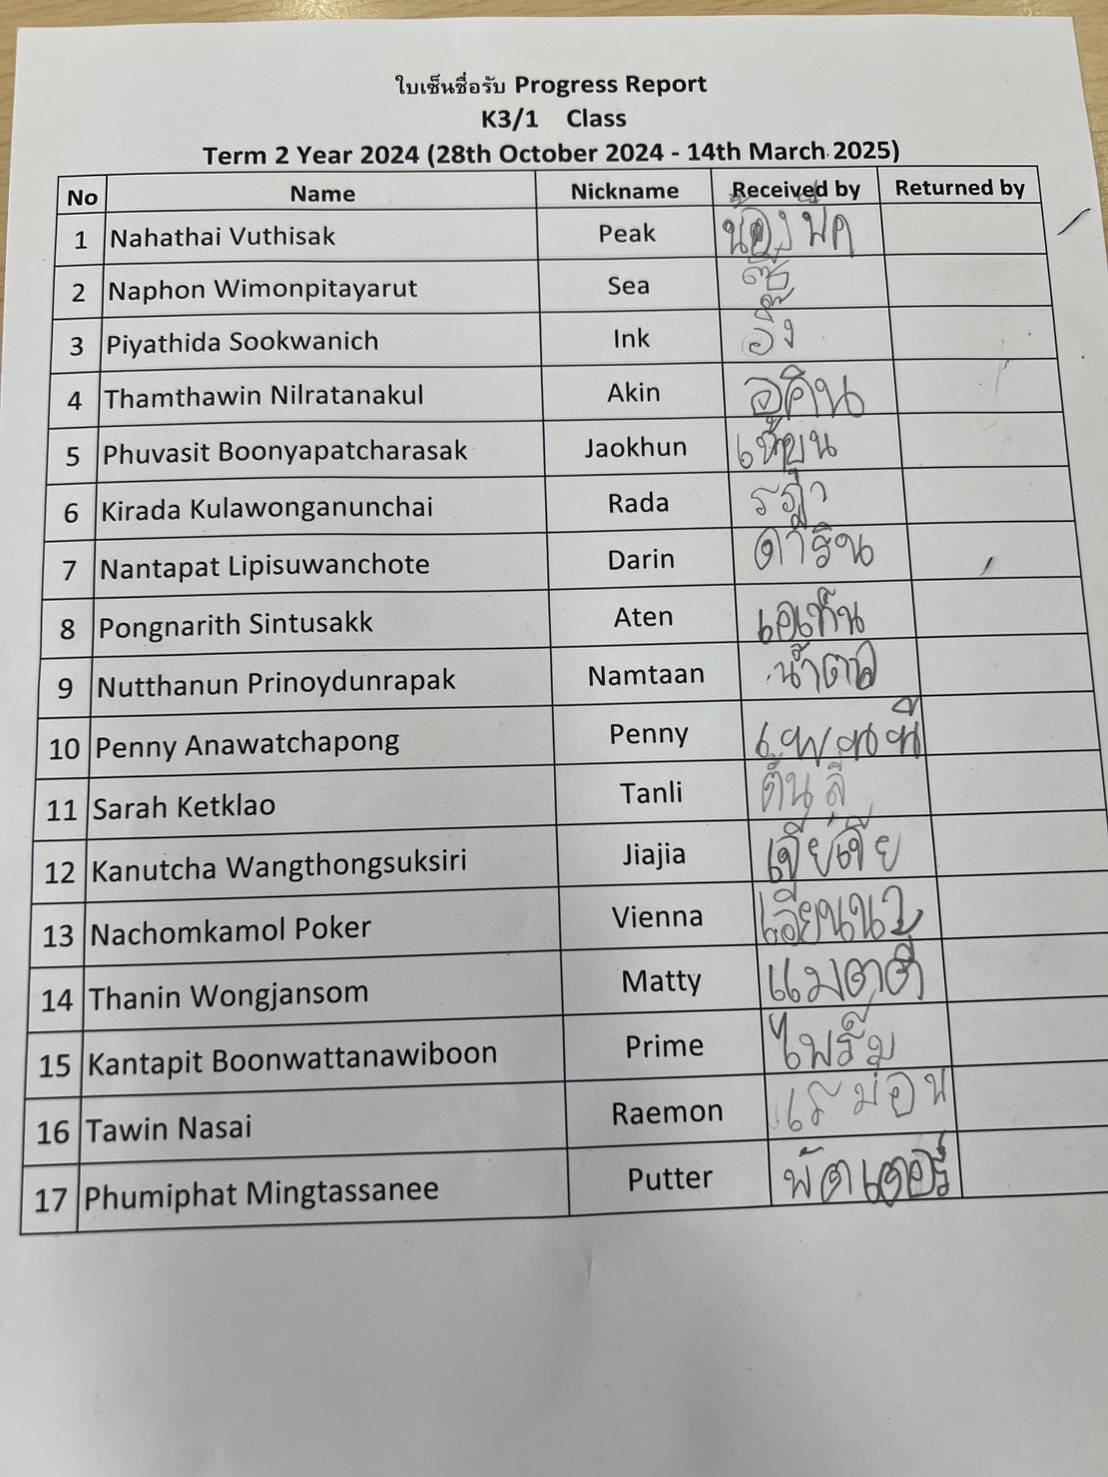 ใบเซ็นชื่อรับ Progress Report
K3/1 Class
Term 2 Year 2024 (28th October 2024 - 14th March 2025)
No Name Nickname Received by Returned by
1 Nahathai Vuthisak Peak น้องพีค
2 Naphon Wimonpitayarut Sea ซี
3 Piyathida Sookwanich Ink อิ๊ง
4 Thamthawin Nilratanakul Akin อคิน
5 Phuvasit Boonyapatcharasak Jaokhun
6 Kirada Kulawonganunchai Rada รฎา
7 Nantapat Lipisuwanchote Darin ดาริน
8 Pongnarith Sintusakk Aten เอเท็น
9 Nutthanun Prinoydunrapak Namtaan น้ำตาล
10 Penny Anawatchapong Penny เพนนี
11 Sarah Ketklao Tanli ตันลี
12 Kanutcha Wangthongsuksiri Jiajia เจียเจีย
13 Nachomkamol Poker Vienna เวียนนา
14 Thanin Wongjansom Matty แมตตี
15 Kantapit Boonwattanawiboon Prime ไพร์ม
16 Tawin Nasai Raemon เรม่อน
17 Phumiphat Mingtassanee Putter พัตเตอร์